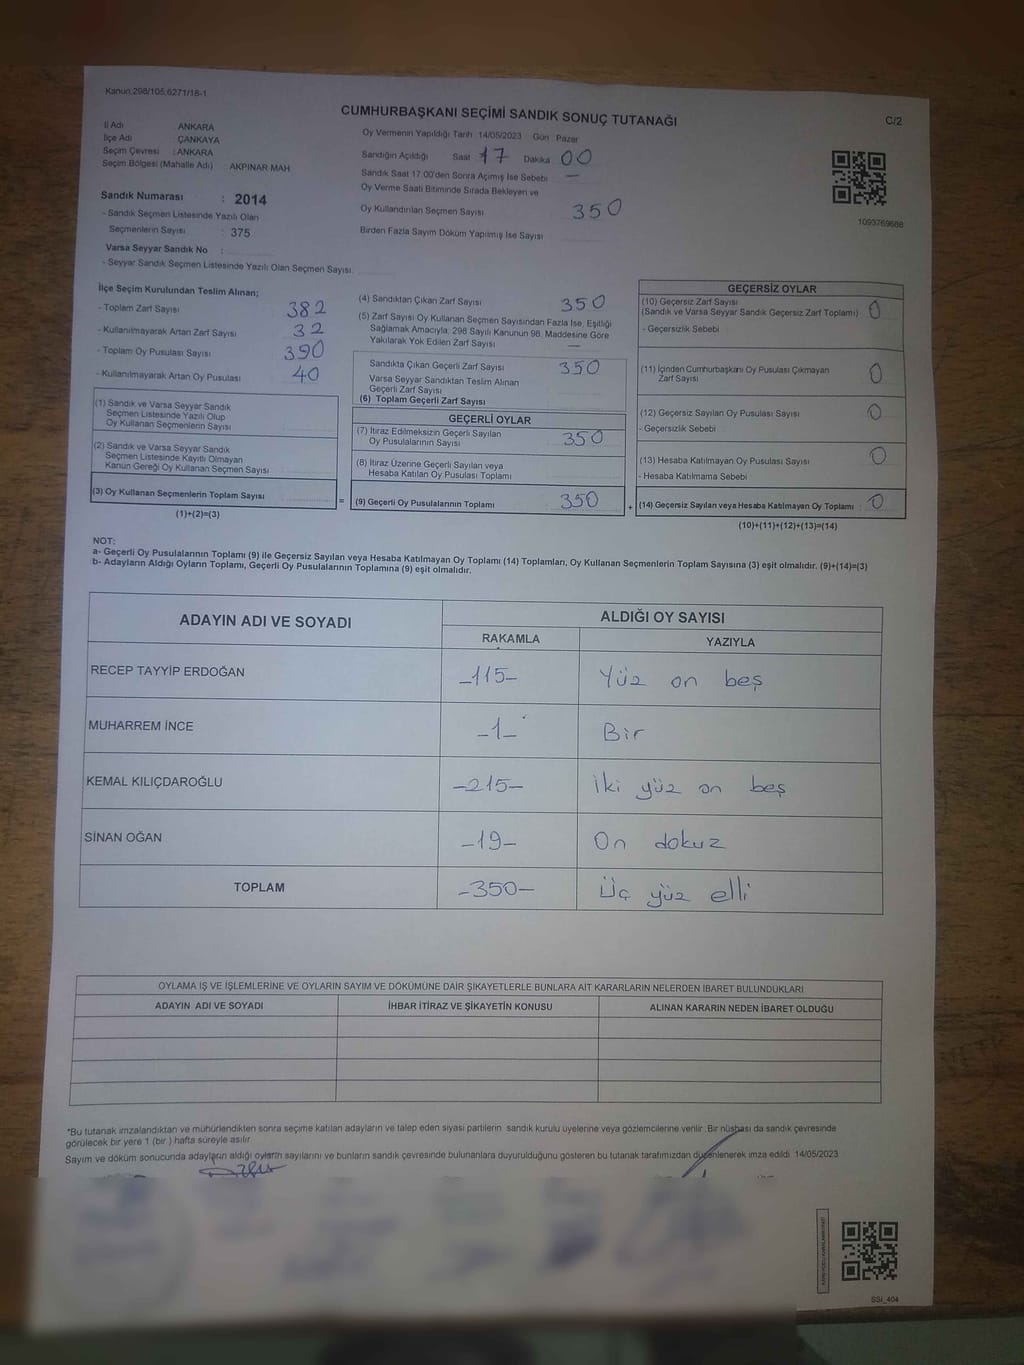 Kanun:298/105,6271/18-1
CUMHURBAŞKANI SEÇİMİ SANDIK SONUÇ TUTANAĞI
C/2
İl Adı ANKARA
İlçe Adı ÇANKAYA
Seçim Çevresi :ANKARA
Seçim Bölgesi (Mahalle Adı) : AKPINAR MAH
Sandık Numarası : 2014
- Sandık Seçmen Listesinde Yazılı Olan
Seçmenlerin Sayısı : 375
Varsa Seyyar Sandık No :
- Seyyar Sandık Seçmen Listesinde Yazılı Olan Seçmen Sayısı:
Oy Vermenin Yapıldığı Tarih 14/05/2023 Gün Pazar
Sandığın Açıldığı Saat 17 Dakika 00
Sandık Saat 17.00'den Sonra Açımış İse Sebebi —
Oy Verme Saati Bitiminde Sırada Bekleyen ve
Oy Kullandırılan Seçmen Sayısı 350
Birden Fazla Sayım Döküm Yapılmış İse Sayısı
1093769688
İlçe Seçim Kurulundan Teslim Alınan;
- Toplam Zarf Sayısı 382
- Kullanılmayarak Artan Zarf Sayısı 32
- Toplam Oy Pusulası Sayısı 390
- Kullanılmayarak Artan Oy Pusulası 40
(1) Sandık ve Varsa Seyyar Sandık
Seçmen Listesinde Yazılı Olup
Oy Kullanan Seçmenlerin Sayısı
(2) Sandık ve Varsa Seyyar Sandık
Seçmen Listesinde Kayıtlı Olmayan
Kanun Gereği Oy Kullanan Seçmen Sayısı
(3) Oy Kullanan Seçmenlerin Toplam Sayısı
(1)+(2)=(3)
=
(4) Sandıktan Çıkan Zarf Sayısı 350
(5) Zarf Sayısı Oy Kullanan Seçmen Sayısından Fazla İse, Eşitliği
Sağlamak Amacıyla; 298 Sayılı Kanunun 98. Maddesine Göre
Yakılarak Yok Edilen Zarf Sayısı —
Sandıkta Çıkan Geçerli Zarf Sayısı 350
Varsa Seyyar Sandıktan Teslim Alınan
Geçerli Zarf Sayısı
(6) Toplam Geçerli Zarf Sayısı
GEÇERLİ OYLAR
(7) İtiraz Edilmeksizin Geçerli Sayılan
Oy Pusulalarının Sayısı 350
(8) İtiraz Üzerine Geçerli Sayılan veya
Hesaba Katılan Oy Pusulası Toplamı
(9) Geçerli Oy Pusulalarının Toplamı 350
+
GEÇERSİZ OYLAR
(10) Geçersiz Zarf Sayısı
(Sandık ve Varsa Seyyar Sandık Geçersiz Zarf Toplamı) 0
- Geçersizlik Sebebi
(11) İçinden Cumhurbaşkanı Oy Pusulası Çıkmayan
Zarf Sayısı 0
(12) Geçersiz Sayılan Oy Pusulası Sayısı 0
- Geçersizlik Sebebi
(13) Hesaba Katılmayan Oy Pusulası Sayısı 0
- Hesaba Katılmama Sebebi
(14) Geçersiz Sayılan veya Hesaba Katılmayan Oy Toplamı : 0
(10)+(11)+(12)+(13)=(14)
NOT:
a- Geçerli Oy Pusulalarının Toplamı (9) ile Geçersiz Sayılan veya Hesaba Katılmayan Oy Toplamı (14) Toplamları, Oy Kullanan Seçmenlerin Toplam Sayısına (3) eşit olmalıdır. (9)+(14)=(3)
b- Adayların Aldığı Oyların Toplamı, Geçerli Oy Pusulalarının Toplamına (9) eşit olmalıdır.
ADAYIN ADI VE SOYADI ALDIĞI OY SAYISI
RAKAMLA YAZIYLA
RECEP TAYYİP ERDOĞAN -115- Yüz on beş
MUHARREM İNCE -1- Bir
KEMAL KILIÇDAROĞLU -215- İki yüz on beş
SİNAN OĞAN -19- On dokuz
TOPLAM -350- Üç yüz elli
OYLAMA İŞ VE İŞLEMLERİNE VE OYLARIN SAYIM VE DÖKÜMÜNE DAİR ŞİKAYETLERLE BUNLARA AİT KARARLARIN NELERDEN İBARET BULUNDUKLARI
ADAYIN ADI VE SOYADI İHBAR İTİRAZ VE ŞİKAYETİN KONUSU ALINAN KARARIN NEDEN İBARET OLDUĞU
*Bu tutanak imzalandıktan ve mühürlendikten sonra seçime katılan adayların ve talep eden siyasi partilerin sandık kurulu üyelerine veya gözlemcilerine verilir. Bir nüshası da sandık çevresinde
görülecek bir yere 1 (bir ) hafta süreyle asılır
Sayım ve döküm sonucunda adayların aldığı oyların sayılarını ve bunların sandık çevresinde bulunanlara duyurulduğunu gösteren bu tutanak tarafımızdan düzenlenerek imza edildi. 14/05/2023
SSI_404